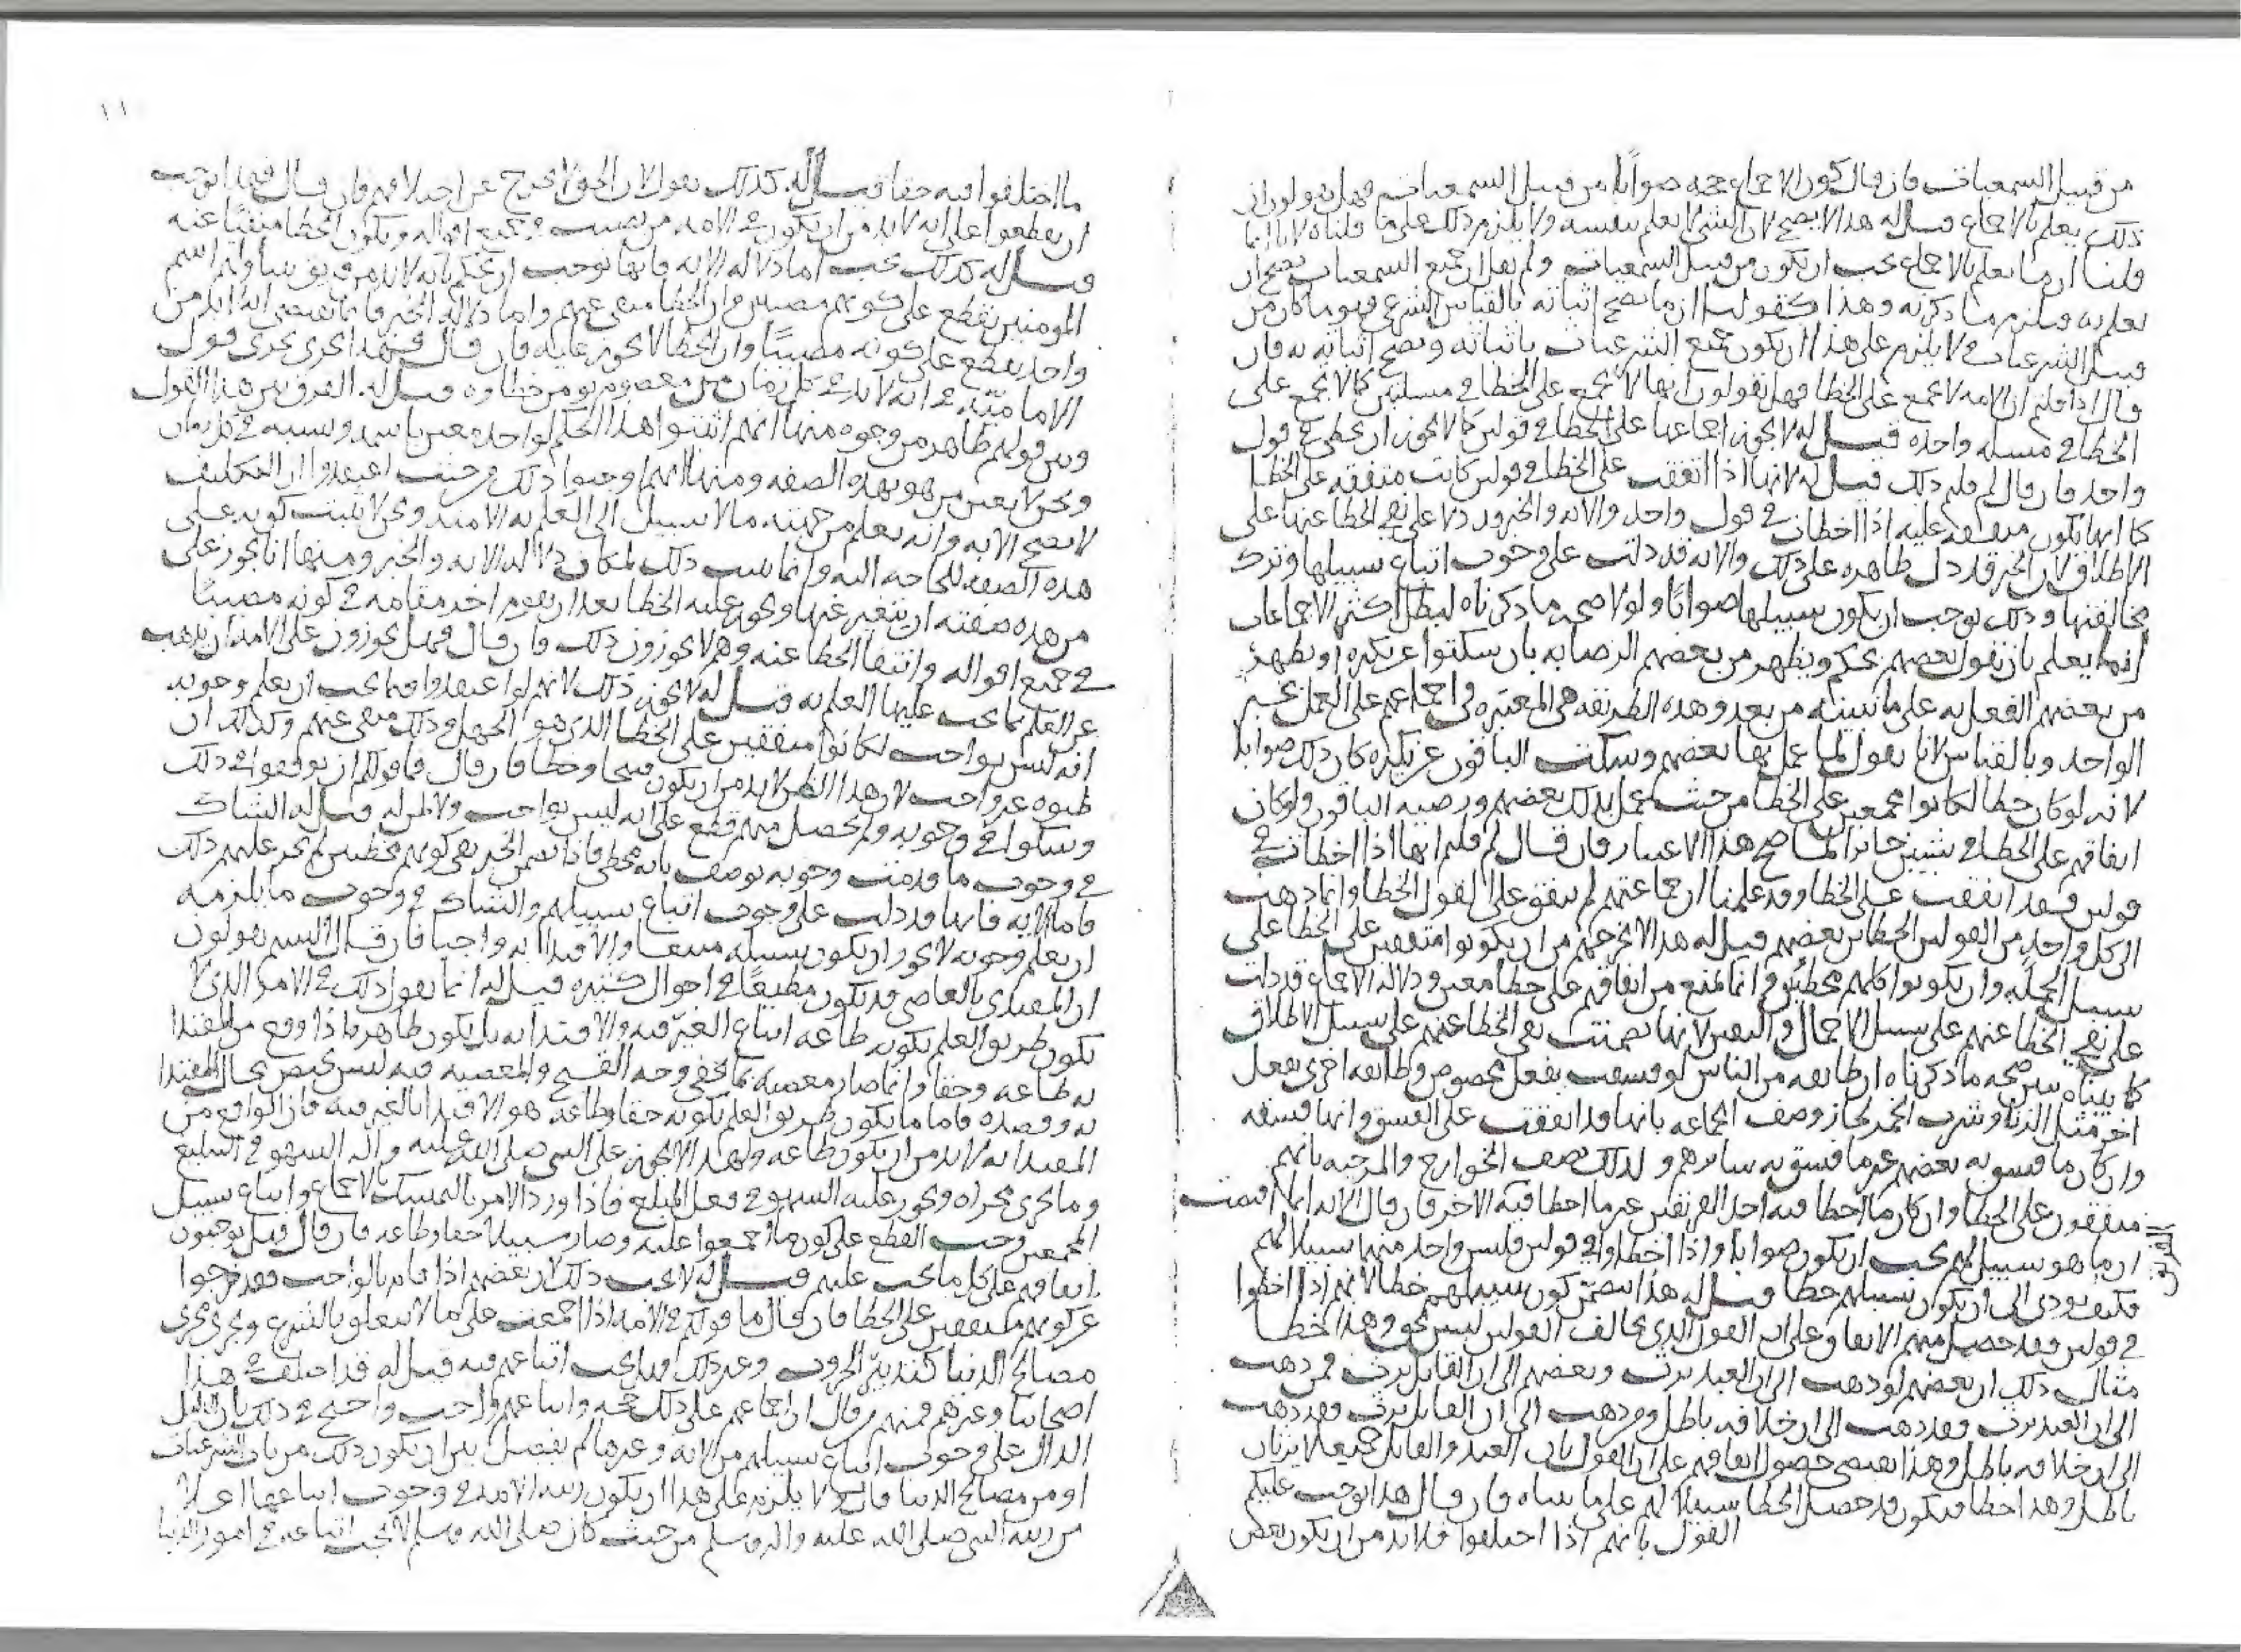 من قبيل السمعيات فان قال كون الاجماع حجه صوابا من قبيل السمعيات فهل تقولون ان
ذلك يعلم بالاجماع قيل له هذا لا يصح لان الشي لا يعلم بنفسه ولا يلزم ذلك على ما قلناه لانا انما
قلنا ان ما يعلم بالاجماع يجب ان يكون من قبيل السمعيات ولم نقل ان جميع السمعيات يصح ان
يعلم به فيلزم ما ذكرته وهذا كقولنا ان ما يصح اثباته بالقياس الشرعي فهو ما كان من
قبيل الشرعيات ولا يلزم على هذا ان يكون جميع الشرعيات باثباته ويصح اثباته به فان
قال اذا قلتم ان الامه لا تجمع على الخطا فهل تقولون انها لا تجمع على الخطا في مسلتين كما لا تجمع على
الخطا في مسله واحده قيل له لا يجوز اجماعها على الخطا في قولين كما لا يجوز ان تخطي في قول
واحد فان قال لم قلتم ذلك قيل له لانها اذا اتفقت على الخطا في قولين كانت متفقه على الخطا
كما انها تكون متفقه عليه اذا اخطات في قول واحد والايه والخبر قد دلا على نفي الخطا عنها على
الاطلاق لان الخبر قد دل ظاهره على ذلك والايه قد دلت على وجوب اتباع سبيلها وترك
مخالفتها وذلك يوجب ان يكون سبيلها صوابا ولولا صحه ما ذكرناه لبطل اكثر الاجماعات
انما يعلم بان يقول بعضهم بحكم ويظهر من بعضهم الرضا به بان سكتوا عن نكيره او يظهر
من بعضهم الفعل به على ما نبينه من بعد وهذه الطريقه هي المعتبره في اجماعهم على العمل بخبر
الواحد وبالقياس لانا نقول لما عمل بها بعضهم وسكت الباقون عن نكيره كان ذلك صوابا
لانه لو كان خطا لكانوا مجمعين على الخطا من حيث عمل بذلك بعضهم ورضيه الباقون ولو كان
اتفاقهم على الخطا في شيئين جائزا لما صح هذا الاعتبار فان قال لم قلتم انها اذا اخطات في
قولين فقد اتفقت على الخطا وقد علمنا ان جماعتهم لم يتفق على القول الخطا وانما ذهب
الى كل واحد من القولين الخطاين بعضهم قيل له هذا لا يخرجهم من ان يكونوا متفقين على الخطا على
سبيل الجمله وان يكونوا كلهم مخطئين وانما يمنع من اتفاقهم على خطا معين ودلاله الاجماع قد دلت
على نفي الخطا عنهم على سبيل الاجمال والتعيين لانها تضمنت نفي الخطا عنهم على سبيل الاطلاق
كما بيناه يبين صحه ما ذكرناه ان طايفه من الناس لو فسقت بفعل مخصوص وطايفه اخرى بفعل
اخر مثل الزنا وشرب الخمر لجاز وصف الجماعه بانها قد اتفقت على الفسق وانها فسقه
وان كان ما فسق به بعضهم غير ما فسق به سائرهم وكذلك نصف الخوارج والمرجيه بانهم
متفقون على الخطا وان كان ما اخطا فيه احد الفريقين غير ما اخطا فيه الاخر فان قال الايه انما اقتضت
ان ما هو سبيل لهم يجب ان يكون صوابا واذا اخطاوا في قولين فليس واحد منها سبيلا لهم
فكيف يودي الى ان يكون سبيلهم خطا قيل له هذا يتضمن كون سبيلهم خطا لانهم اذا اخطوا
في قولين فقد حصل منهم الاتفاق على ان القول الذي يخالف القولين ليس بحق وهذا خطا
مثال ذلك ان بعضهم لو ذهب الى ان العبد يرث وبعضهم الى ان القاتل يرث فمن ذهب
الى ان العبد يرث فقد ذهب الى ان خلافه باطل ومن ذهب الى ان القاتل يرث فقد ذهب
الى ان خلافه باطل وهذا يقتضي حصول اتفاقهم على ان القول بان العبد والقاتل جميعا لا يرثان
باطل وهذا خطا فيكون قد حصل الخطا سبيلا لهم على ما بيناه فان قال هذا يوجب عليكم
القول بانهم اذا اختلفوا فلا بد من ان يكون بعض
١١
ما اختلفوا فيه حقا قيل له كذلك نقول لان الحق لا يخرج عن اختلافهم فان قال فهذا يوجب
ان يقطعوا على انه لا بد من ان يكون في الامه من يصيب في جميع اقواله ويكون الخطا منتفيا عنه
قيل له كذلك يجب اما دلاله الايه فانها توجب ان نحكم بانه لا بد من فريق يتناولهم اسم
المومنين نقطع على كونهم مصيبين وان الخطا منفي عنهم واما دلاله الخبر فانما تقتضي انه لا بد من
واحد نقطع على كونه مصيبا وان الخطا لا يجوز عليه فان قال فهذا يجري مجرى قول
الاماميه في انه لا بد في كل زمان من معصوم يومن خطاوه قيل له الفرق بين هذا القول
وبين قولهم ظاهر من وجوه منها انهم اثبتوا هذا الحكم لواحد معين باسمه ونسبه في كل زمان
ونحن لا نعين من هو بهذه الصفه ومنها انهم اوجبوا ذلك من حيث اعتقدوا ان التكليف
لا يصح الا به وانه يعلم من جهته ما لا سبيل الى العلم به الا منه ونحن لا نثبت كونه على
هذه الصفه للحاجه اليه وانما نثبت ذلك لمكان دلاله الايه والخبر ومنها انا نجوز على
من هذه صفته ان يتغير عنها ويجوز عليه الخطا بعد ان يقوم اخر مقامه في كونه مصيبا
في جميع اقواله وانتفا الخطا عنه وهم لا يجوزون ذلك فان قال فهل تجوزون على الامه ان يذهب
عن العلم بما يجب عليها العلم به قيل له لا يجوز ذلك لانهم لو اعتقدوا فيما يجب ان يعلم وجوبه
انه ليس بواجب لكانوا متفقين على الخطا الذي هو الجهل وذلك منفي عنهم وكذلك ان
ظنوه غير واجب لان هذا الظن لا بد من ان يكون قبيحا وخطا فان قال فما قولكم ان توقفوا في ذلك
وشكوا في وجوبه ولم يحصل منهم قطع على انه ليس بواجب ولا ظن له قيل له الشاك
في وجوب ما قد ثبت وجوبه يوصف بانه مخطي فاذا تضمن الخبر نفي كونهم مخطين لم يجز عليهم ذلك
فاما الايه فانها قد دلت على وجوب اتباع سبيلهم والشاك في وجوب ما يلزمه
ان يعلم وجوبه لا يجوز ان يكون سبيله متبعا والاقتدا به واجبا فان قال الستم تقولون
ان المقتدي بالعاصي قد يكون مطيعا في احوال كثيره قيل له انما نقول ذلك في الامر الذي لا
يكون طريق العلم بكونه طاعه اتباع الغير فيه والاقتدا به بل يكون ظاهر ما اذا وقع من المقتدا
به طاعه وحقا وانما صار معصيه بما يخفى وجه القبح والمعصيه فيه ليس يختص بحال المقتدا
به وقصده فاما ما يكون طريق العلم بكونه حقا وطاعه هو الاقتدا بالغير فيه فان الواقع من
المقتدا به لا بد من ان يكون طاعه ولهذا لا يجوز على النبي صلى الله عليه واله السهو في التبليغ
وما يجري مجراه ويجوز عليه السهو في فعل المبلغ فاذا ورد الامر بالتمسك بالاجماع واتباع سبيل
المجمعين وجب القطع على كون ما اجمعوا عليه وصار سبيلا حقا وطاعه فان قال فهل توجبون
اتفاقهم على كل ما يجب عليهم قيل له لا يجب ذلك لان بعضهم اذا قام بالواجب فقد خرجوا
عن كونهم متفقين على الخطا فان قال ما قولكم في الامه اذا اجمعت على ما لا يتعلق بالشرع ويجري مجرى
مصالح الدنيا كتدبير الحروب وغير ذلك فهل يجب اتباعهم فيه قيل له قد اختلف في هذا
اصحابنا وغيرهم فمنهم من قال ان اجماعهم على ذلك حجه واتباعهم واجب واحتج في ذلك بان الدليل
الدال على وجوب اتباع سبيلهم من الايه وغيرها لم يفصل بين ان يكون ذلك من باب الشرعيات
او من مصالح الدنيا قال ولا يلزم على هذا ان يكون رتبه الامه في وجوب اتباعها اعلا
من رتبه النبي صلى الله عليه واله وسلم من حيث كان صلى الله وسلم لا يجب اتباعه في امور الدنيا